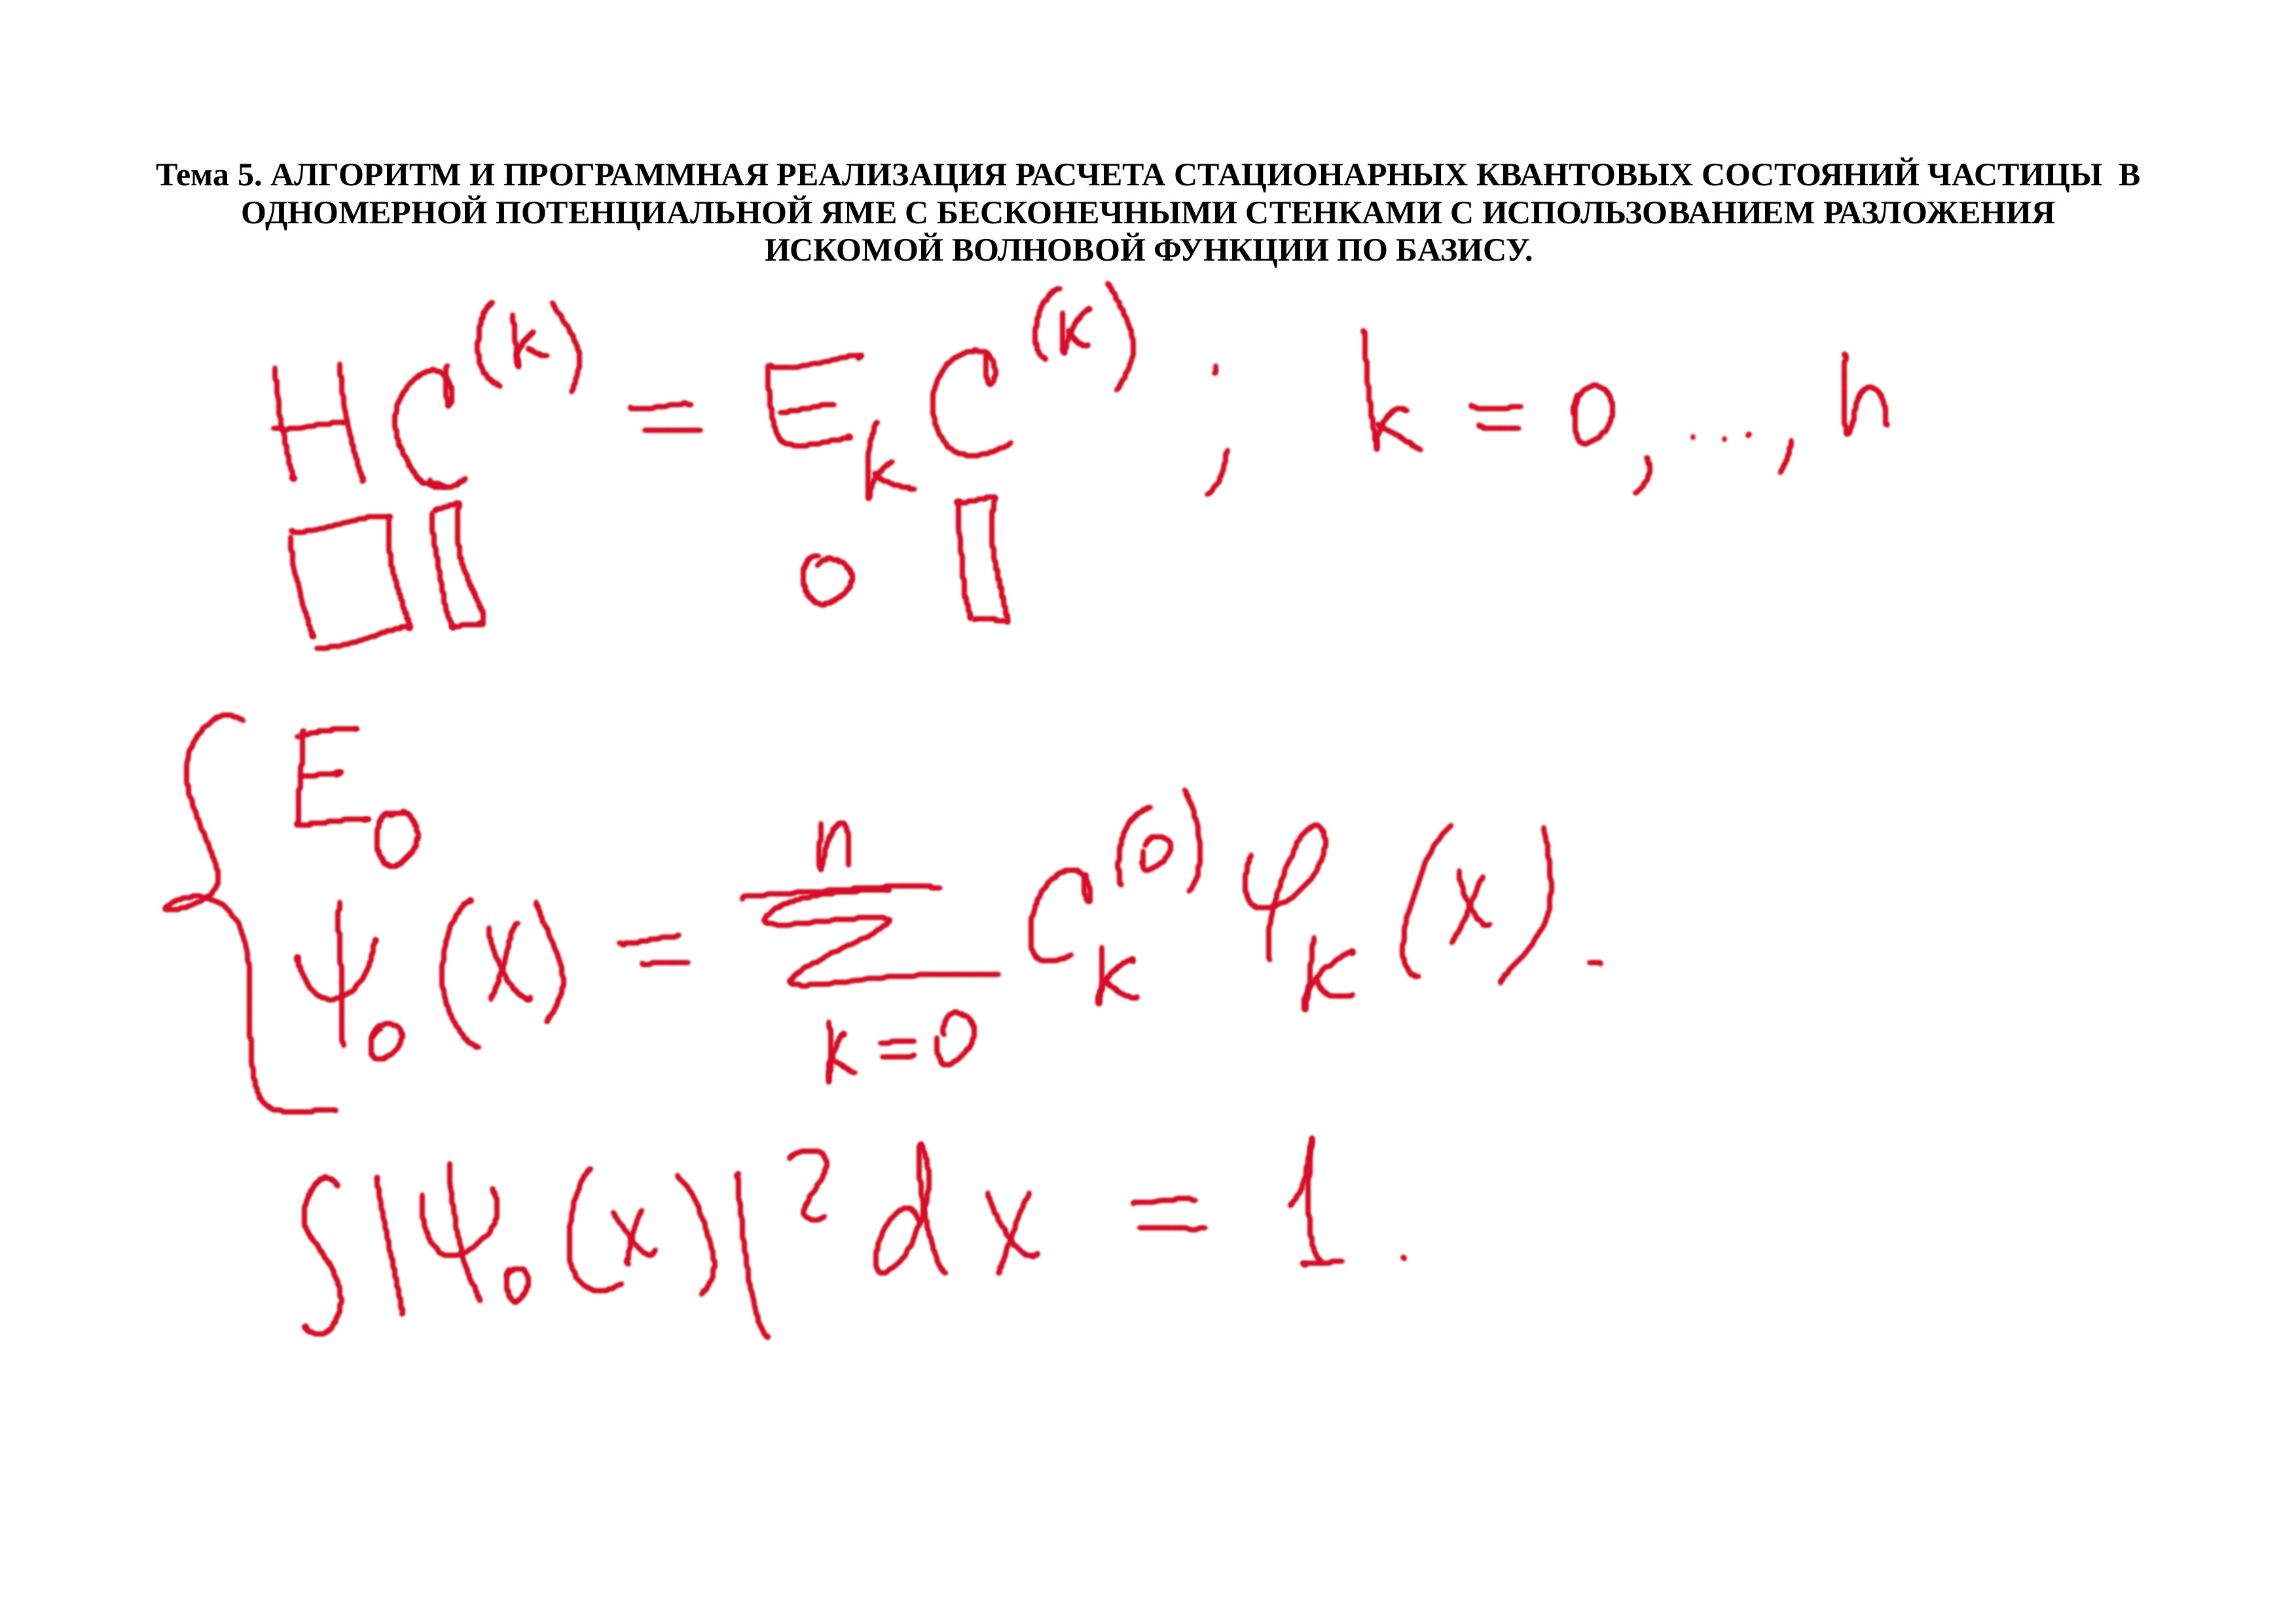 Тема 5. АЛГОРИТМ И ПРОГРАММНАЯ РЕАЛИЗАЦИЯ РАСЧЕТА СТАЦИОНАРНЫХ КВАНТОВЫХ СОСТОЯНИЙ ЧАСТИЦЫ В
ОДНОМЕРНОЙ ПОТЕНЦИАЛЬНОЙ ЯМЕ С БЕСКОНЕЧНЫМИ СТЕНКАМИ С ИСПОЛЬЗОВАНИЕМ РАЗЛОЖЕНИЯ
ИСКОМОЙ ВОЛНОВОЙ ФУНКЦИИ ПО БАЗИСУ.
H C^(k) = E_k C^(k) ; k = 0, ..., n
E_0
ψ_0 (x) = ∑_{k=0}^{n} C_k^(0) φ_k (x).
∫ |ψ_0 (x)|^2 dx = 1.